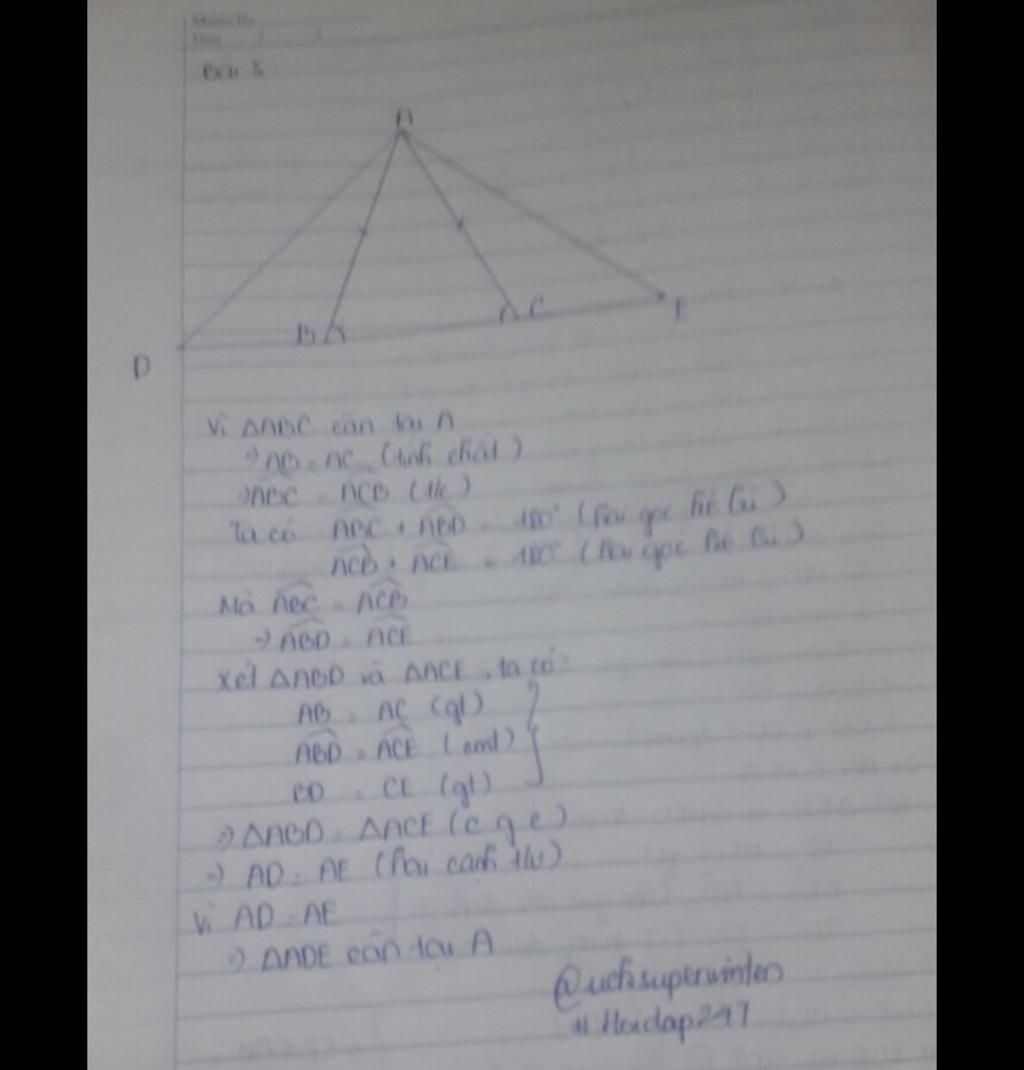 Bài 5
A
B
C
E
D
Vì ΔABC cân tại A
=> AB = AC (tính chất)
=> ABC = ACB (t/c)
Ta có ABC + ABD = 180° (hai góc kề bù)
ACB + ACE = 180° (hai góc kề bù)
Mà ABC = ACB
=> ABD = ACE
Xét ΔABD và ΔACE, ta có:
AB = AC (gt)
ABD = ACE (cmt)
BD = CE (gt)
=> ΔABD = ΔACE (c g c)
=> AD = AE (hai cạnh t/ư)
Vì AD = AE
=> ΔADE cân tại A
# Hoidap247